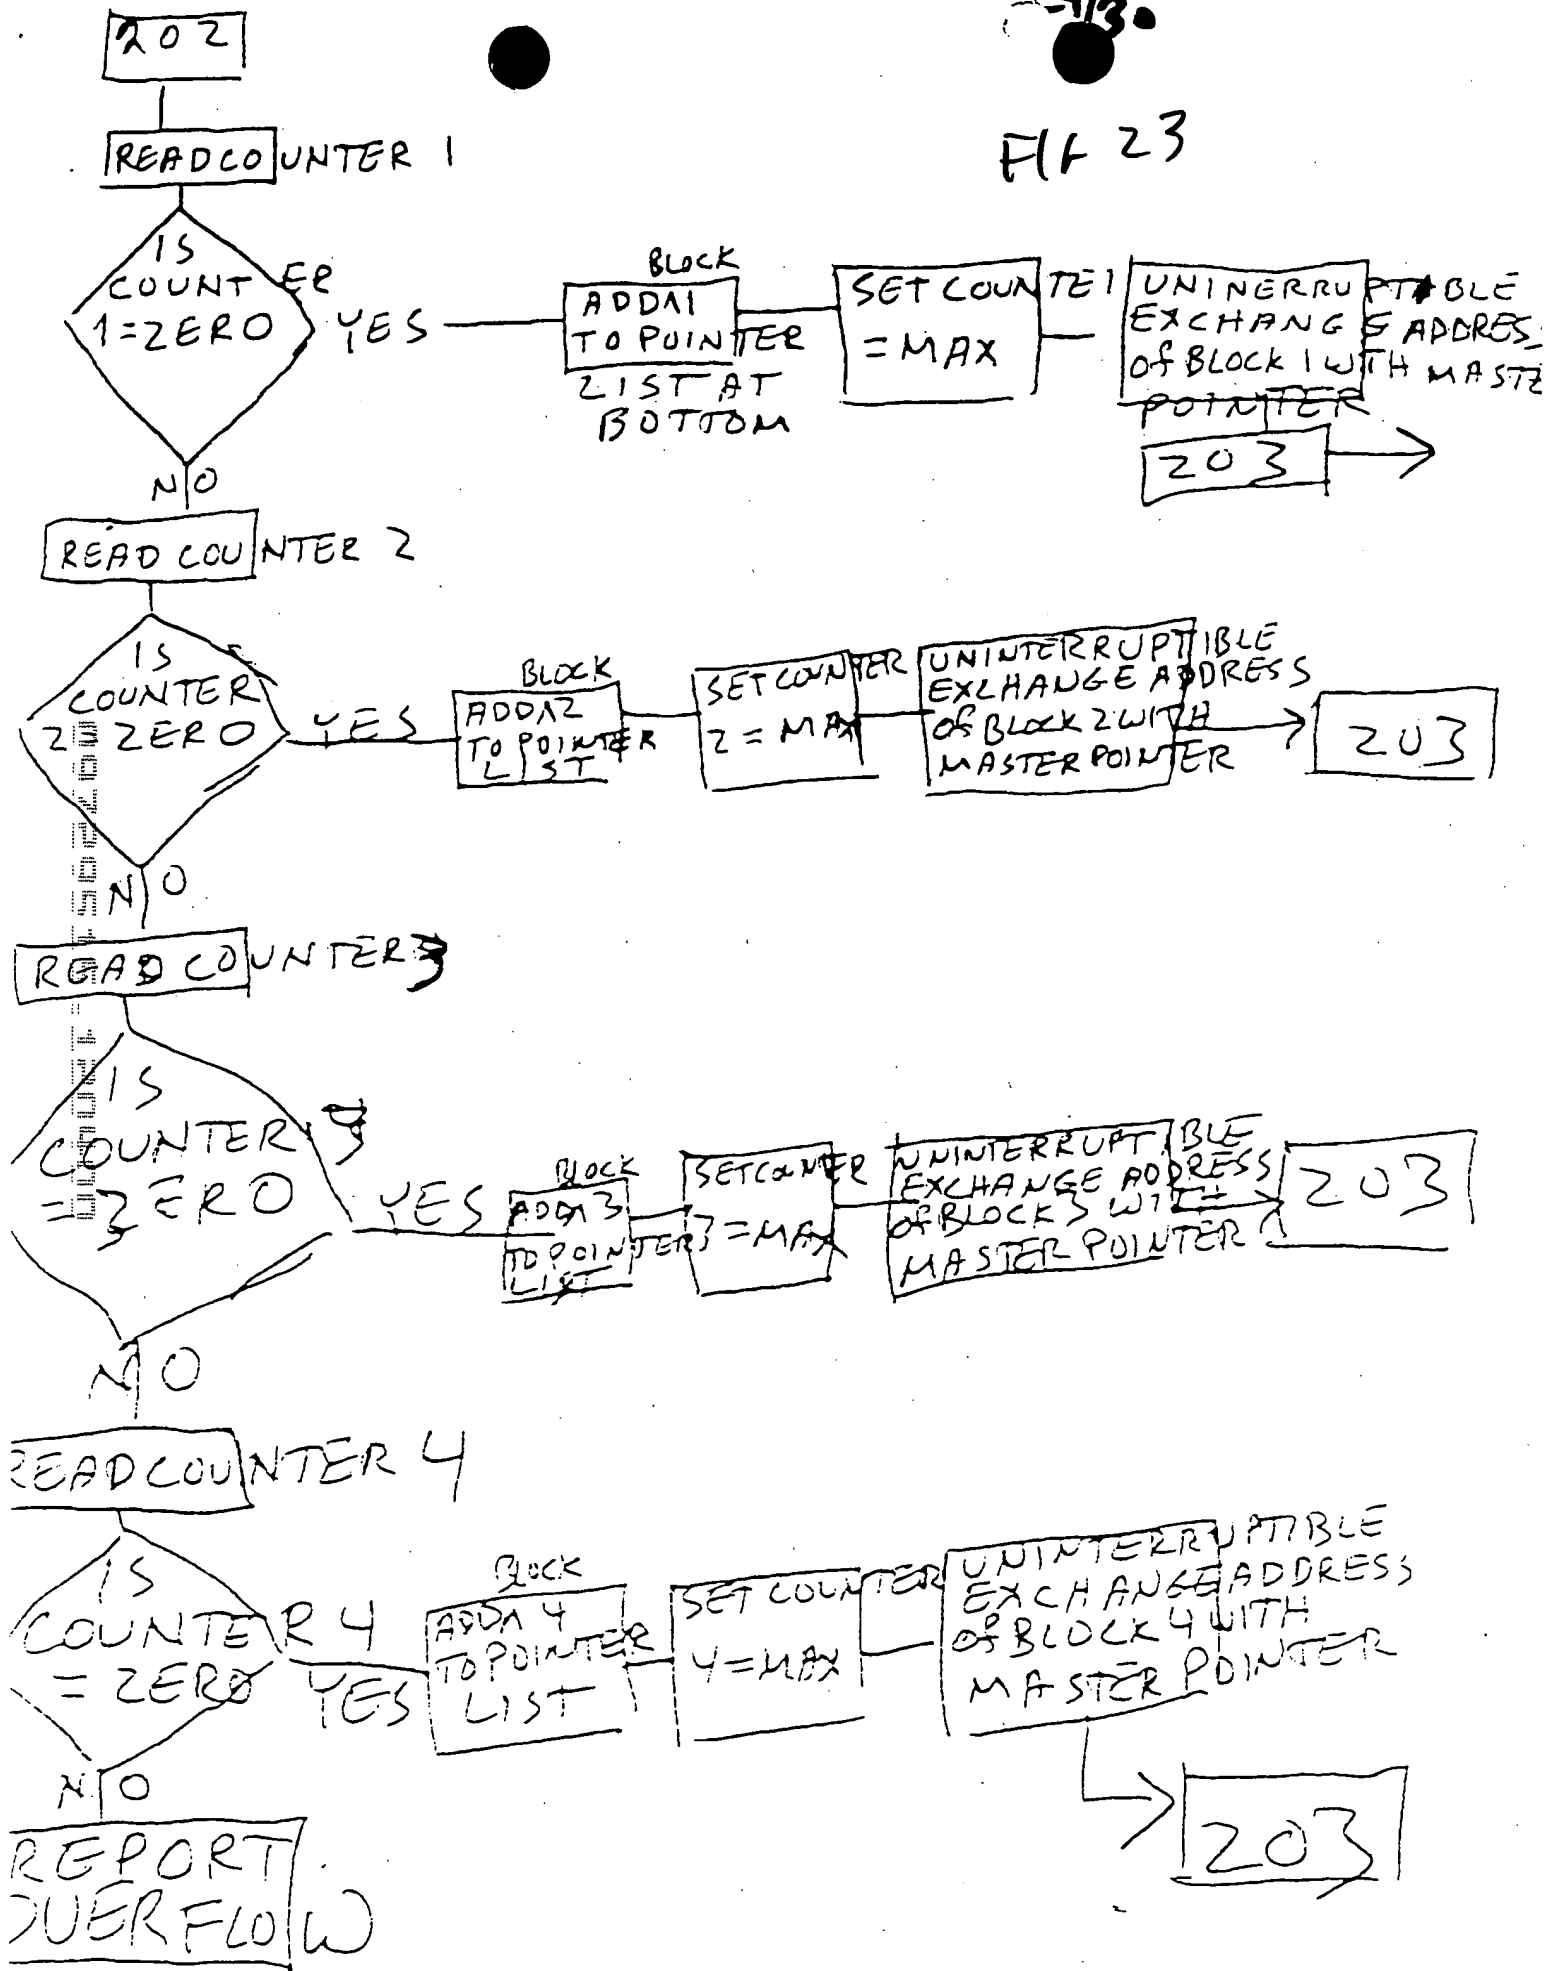 202
FIG 23
READ COUNTER 1
IS
COUNTER
1=ZERO
YES
BLOCK
ADD 1
TO POINTER
LIST AT
BOTTOM
SET COUNTE 1
= MAX
UNINERRUPTABLE
EXCHANGE ADDRES
OF BLOCK 1 WITH MASTE
POINTER
203
NO
READ COUNTER 2
IS
COUNTER
2 = ZERO
YES
BLOCK
ADD 2
TO POINTER
LIST
SET COUNTER
2 = MAX
UNINTERRUPTIBLE
EXCHANGE ADDRESS
OF BLOCK 2 WITH
MASTER POINTER
203
NO
READ COUNTER 3
IS
COUNTER 3
= ZERO
YES
BLOCK
ADD 3
TO POINTER
LIST
SET COUNTER
3 = MAX
UNINTERRUPTIBLE
EXCHANGE ADDRESS
OF BLOCK 3 WITH
MASTER POINTER
203
NO
READ COUNTER 4
IS
COUNTER 4
= ZERO
YES
BLOCK
ADD 4
TO POINTER
LIST
SET COUNTER
4 = MAX
UNINTERRUPTIBLE
EXCHANGE ADDRESS
OF BLOCK 4 WITH
MASTER POINTER
203
NO
REPORT
OVERFLOW